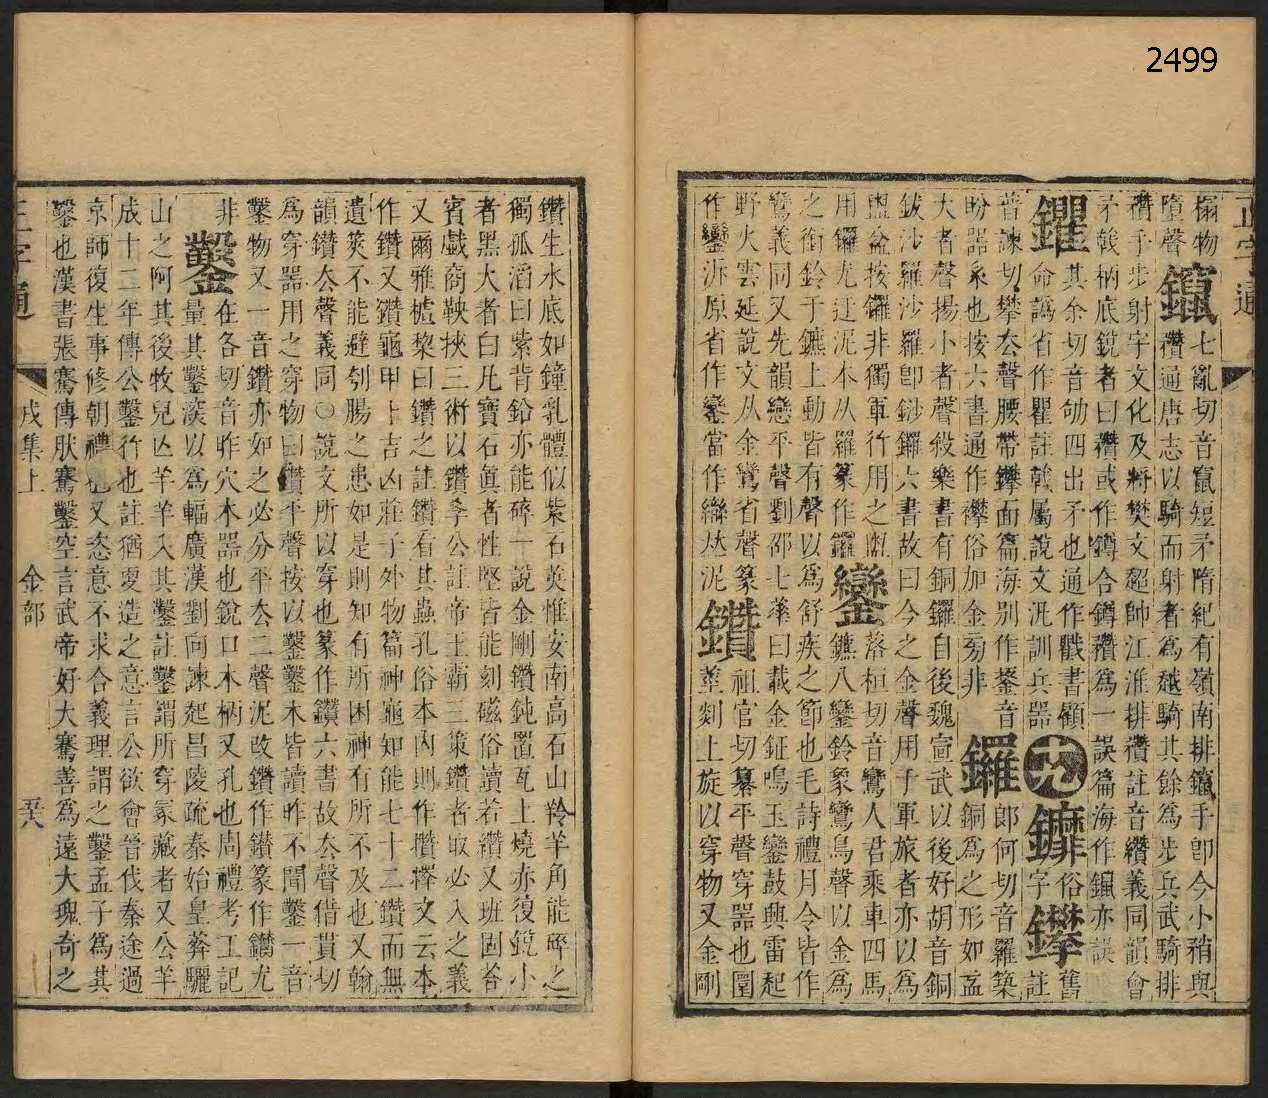 2499
正字通
搦物
墮聲鑹七亂切音竄短矛隋紀有嶺南排鑹手卽今小矟與
穳通唐志以騎而射者爲越騎其餘爲步兵武騎排
穳手步射字文化及將樊文超帥江淮排穳註音纘義同韻會
矛戟柄底銳者曰穳或作鐏合鐏穳爲一誤篇海作鑷亦誤
鑺命譌省作瞿註戟屬說文汎訓兵器十九鑉俗字鑻舊註
普諫切攀去聲腰帶鑻面篇海别作鋬音
盼器系也按六書通作襻俗加金旁非鑼郎何切音羅築銅爲之形如盂
大者聲揚小者聲殺樂書有銅鑼自後魏宣武以後好胡音銅
鈸沙羅沙羅卽鈔鑼六書故曰今之金聲用于軍旅者亦以爲
盥盆按鑼非獨軍行用之
用鑼尤迂泥本从羅篆作鑼鑾落桓切音鸞人君乘車四馬
鑣八鑾鈴象鸞鳥聲以金爲
之銜鈴于鑣上動皆有聲以爲舒疾之節也毛詩禮月令皆作
鸞義同又先韻戀平聲劉邵七華曰載金鉦鳴玉鑾鼓興雷起
野火雲延說文从金鸞省聲篆
作鑾泝原省作鑾當作䜌夶泥鑽祖官切纂平聲穿器也圜
䔢剡上旋以穿物又金剛
鑽生水底如鐘乳體似紫石英惟安南高石山羚羊角能碎之
獨孤滔曰紫背鉛亦能碎一說金剛鑽鈍置瓦上燒赤復銳小
者黑大者白凡寶石眞者性堅皆能刻磁俗讀若纘又班固荅
賓戲商鞅挾三術以鑽孝公註帝王霸三策鑽者取必入之義
又爾雅樝棃曰鑽之註鑽看其蟲孔俗本內則作欑欅文云本
作鑽又鑽龜甲卜吉凶莊子外物篇神龜知能七十二鑽而無
遺筴不能避刳腸之患如是則知有所困神有所不及也又翰
韻鑽去聲義同〇說文所以穿也篆作鑽六書故去聲借貫切
爲穿器用之穿物曰鑽平聲按以鑿鑿木皆讀昨不聞鑿一音
鑿物又一音鑽亦如之必分平去二聲泥改鑽作鑚篆作鐫尤
非鑿在各切音昨穴木器也銳口木柄又孔也周禮考工記
量其鑿深以爲輻廣漢劉向諫起昌陵疏秦始皇葬驪
山之阿其後牧兒亾羊羊入其鑿註鑿謂所穿冢藏者又公羊
成十二年傳公鑿行也註猶更造之意言公欲會晉伐秦途過
京師復生事修朝禮也又恣意不求合義理謂之鑿孟子爲其
鑿也漢書張騫傳肰騫鑿空言武帝好大騫善爲遠大瑰奇之
正字通 戌集上 金部